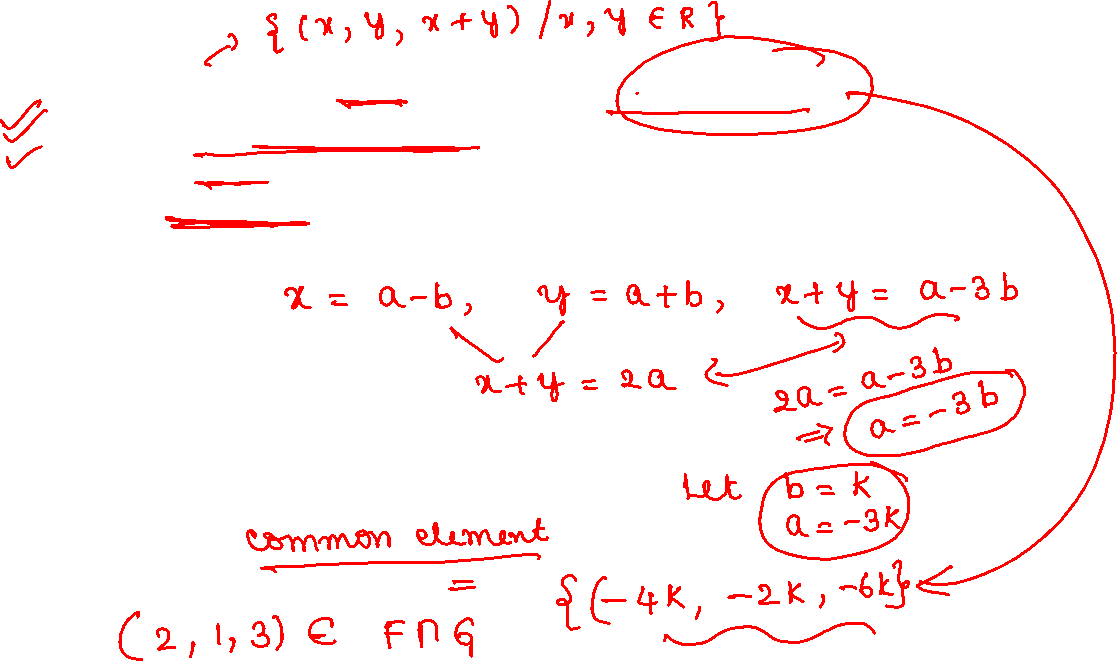 {(x, y, x+y) / x, y ∈ R}
x = a-b, y = a+b, x+y = a-3b
x+y = 2a
2a = a-3b
⇒ a = -3b
Let b = k
a = -3k
common element
=
{(-4k, -2k, -6k}
(2, 1, 3) ∈ F∩G